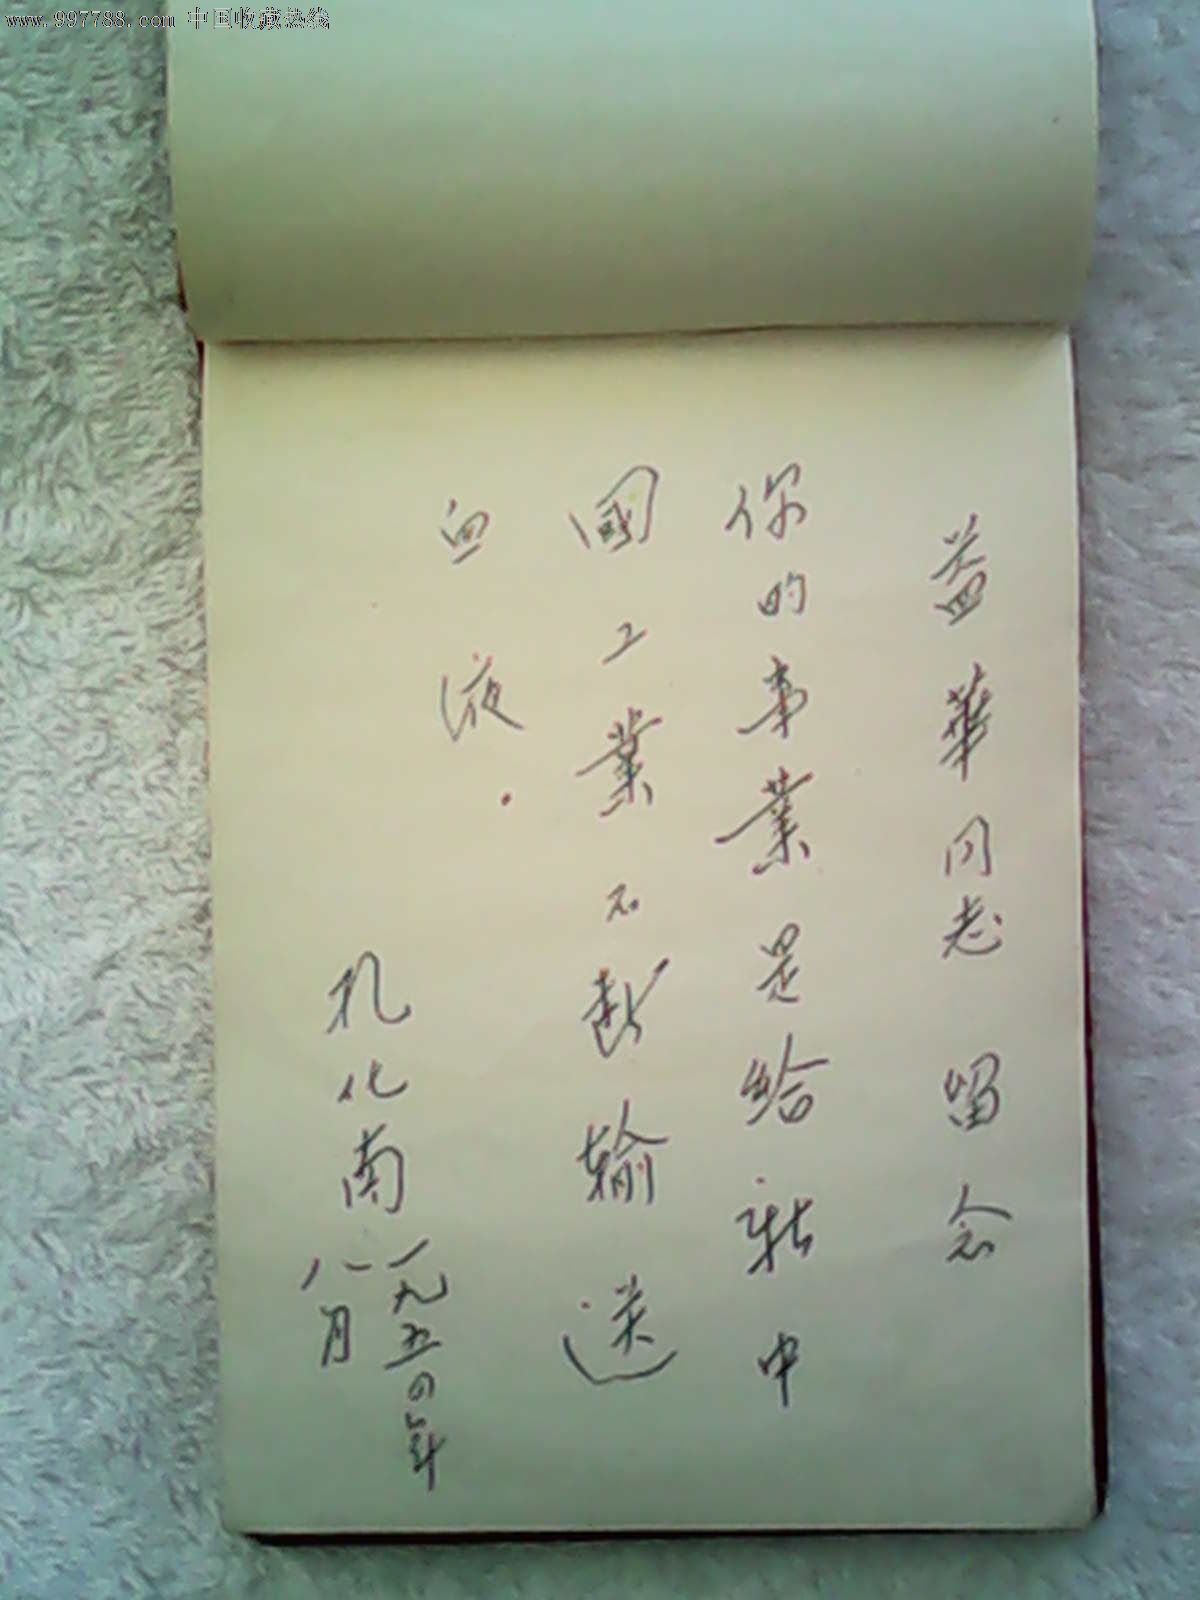 www.997788.com 中国收藏热线
益華同志 留念
你的事業是給新中
國工業不斷输送
血液.
孔化南 一九五四年
八月